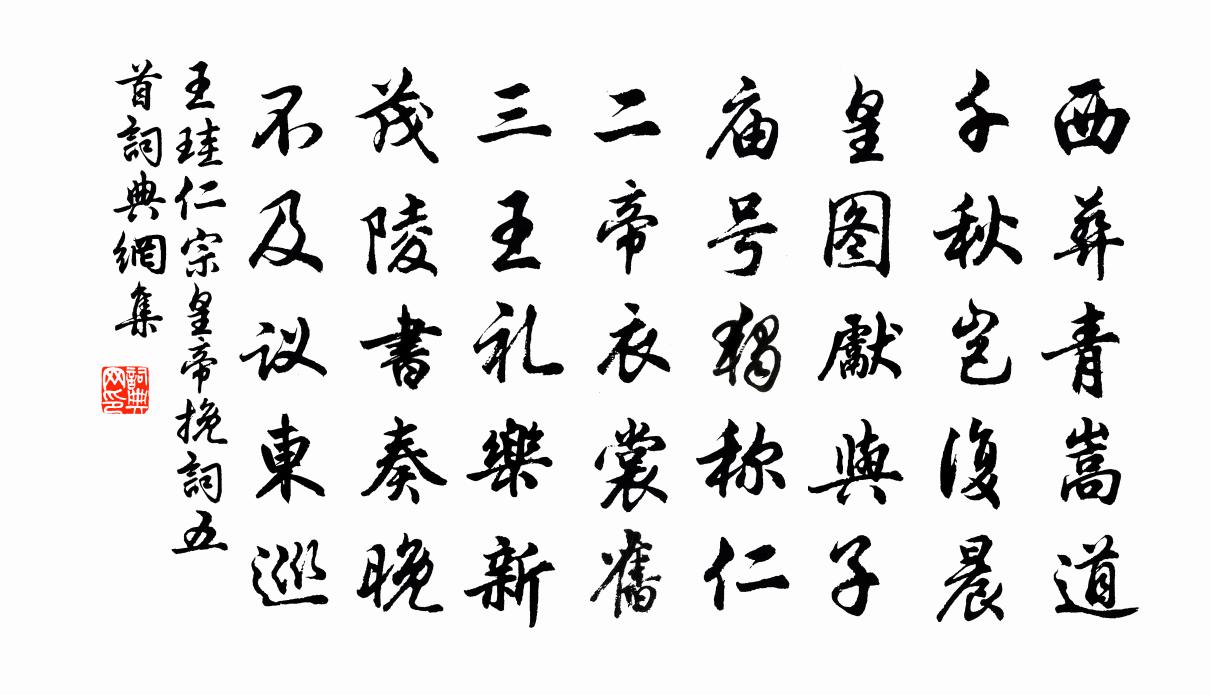 西葬青嵩道
千秋岂復晨
皇图獻與子
庙号獨称仁
二帝衣裳舊
三王礼樂新
茂陵書奏晚
不及议東巡
王珪仁宗皇帝挽詞五
首詞典網集
詞典
网印